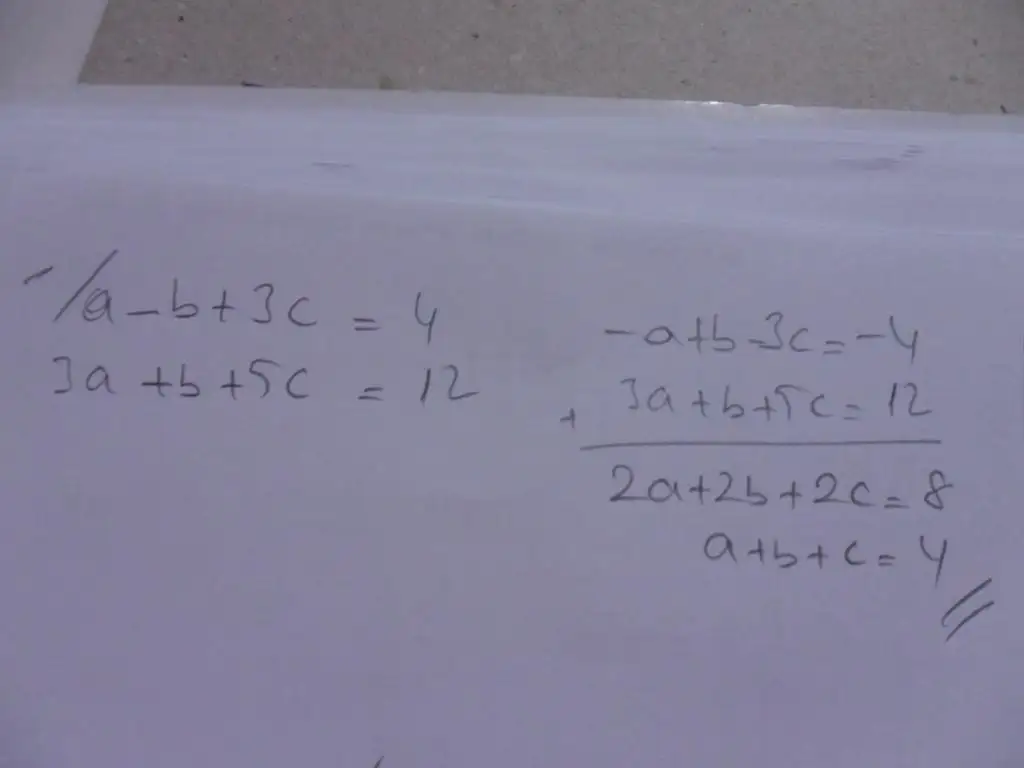 -/a-b+3c = 4
3a+b+5c = 12
-a+b-3c=-4
3a+b+5c=12
+
2a+2b+2c=8
a+b+c=4